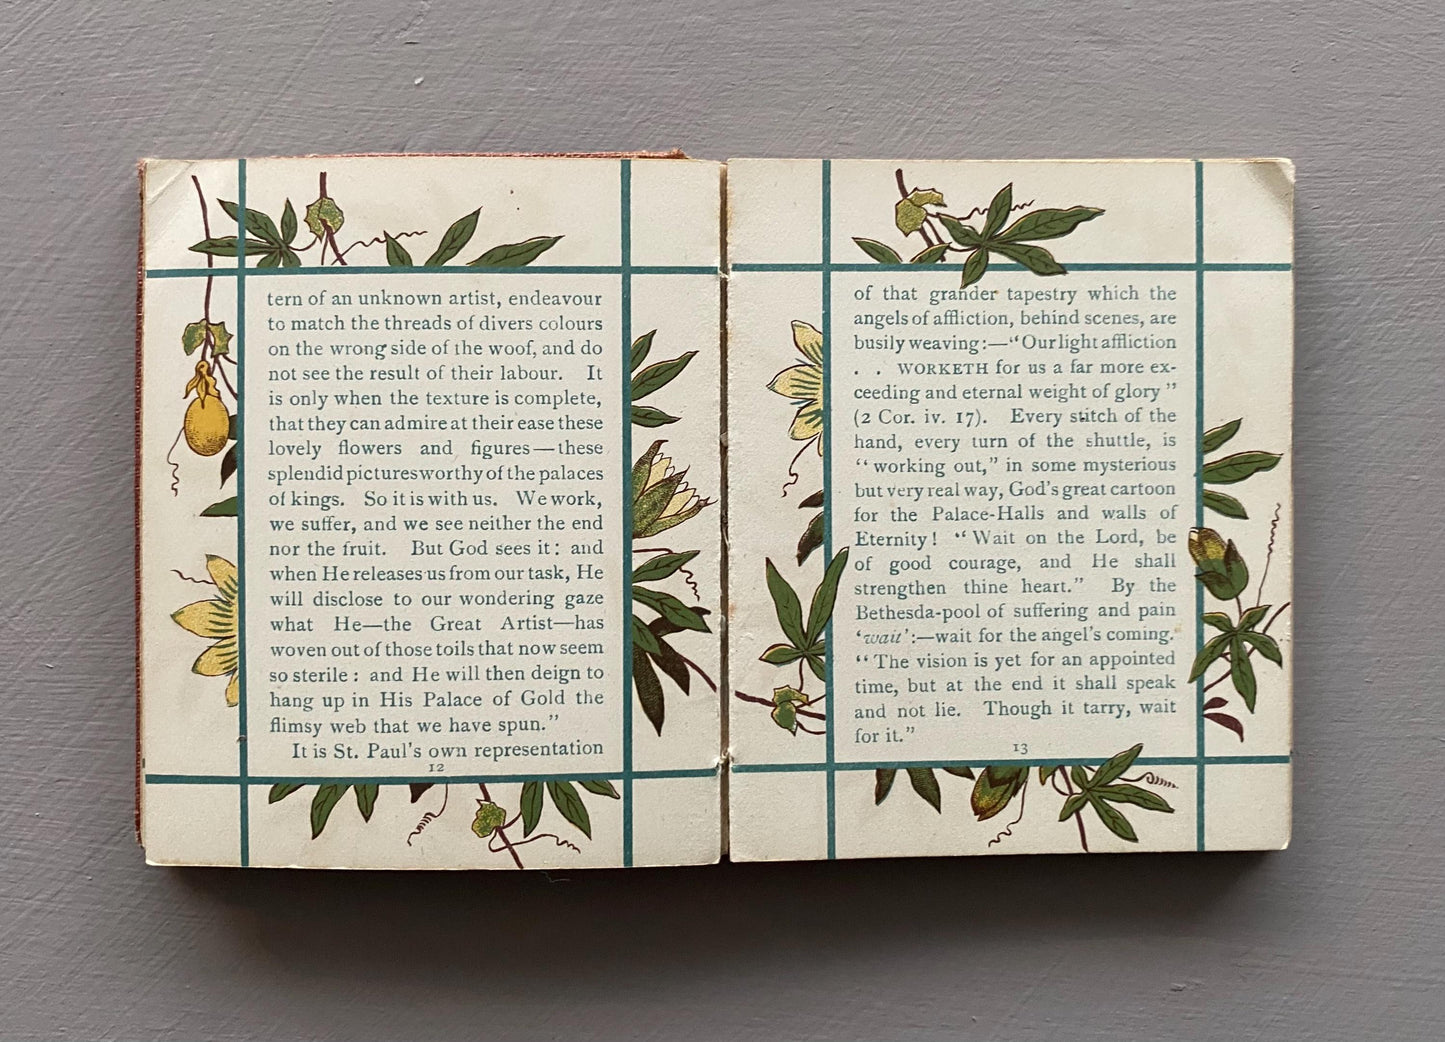 tern of an unknown artist, endeavour
to match the threads of divers colours
on the wrong side of the woof, and do
not see the result of their labour. It
is only when the texture is complete,
that they can admire at their ease these
lovely flowers and figures—these
splendid pictures worthy of the palaces
of kings. So it is with us. We work,
we suffer, and we see neither the end
nor the fruit. But God sees it: and
when He releases us from our task, He
will disclose to our wondering gaze
what He—the Great Artist—has
woven out of those toils that now seem
so sterile: and He will then deign to
hang up in His Palace of Gold the
flimsy web that we have spun."
It is St. Paul's own representation
12
of that grander tapestry which the
angels of affliction, behind scenes, are
busily weaving:—"Our light affliction
. . WORKETH for us a far more ex-
ceeding and eternal weight of glory"
(2 Cor. iv. 17). Every stitch of the
hand, every turn of the shuttle, is
"working out," in some mysterious
but very real way, God's great cartoon
for the Palace-Halls and walls of
Eternity! "Wait on the Lord, be
of good courage, and He shall
strengthen thine heart." By the
Bethesda-pool of suffering and pain
'wait':—wait for the angel's coming.
"The vision is yet for an appointed
time, but at the end it shall speak
and not lie. Though it tarry, wait
for it."
13